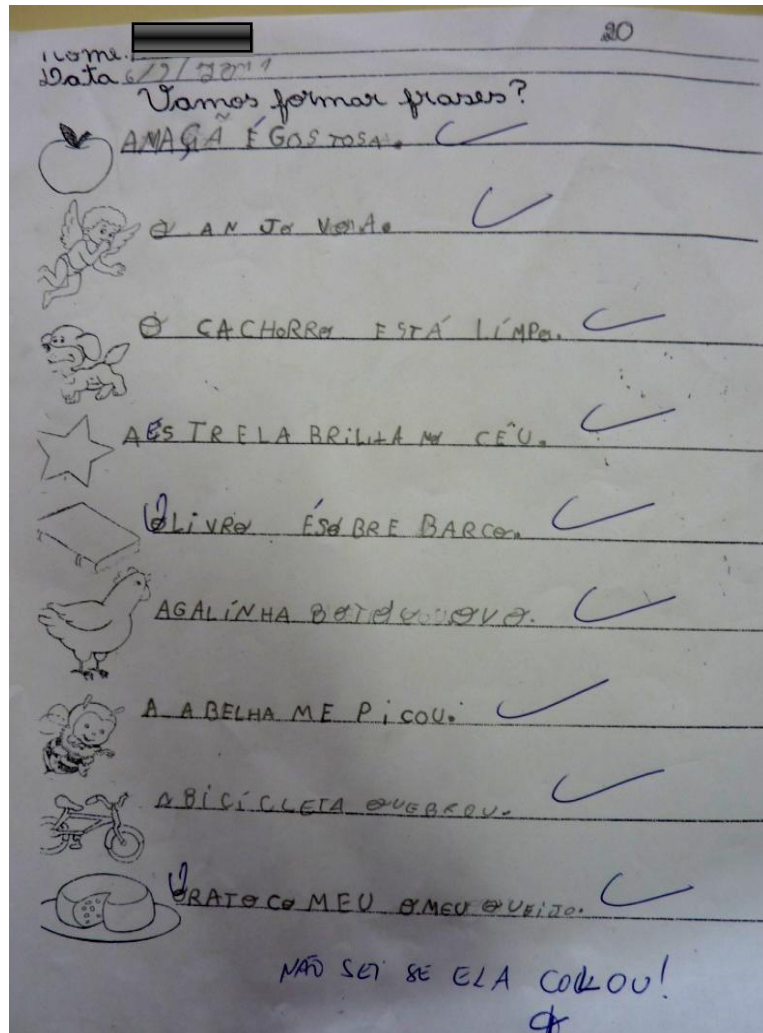 20
Nome:
Data 6/9/2011
Vamos formar frases?
AMAÇÃ É GOSTOSA.
O ANJO VOUA.
O CACHORRO ESTÁ LÍMPO.
AESTRELA BRILHA NO CÉU.
OLIVRO ÉSOBRE BARCO.
AGALINHA BOTOU OVO.
A ABELHA ME PICOU.
A BICICLETA QUEBROU.
ORATO COMEU OMEU QUEIJO.
NÃO SEI SE ELA COLOU!